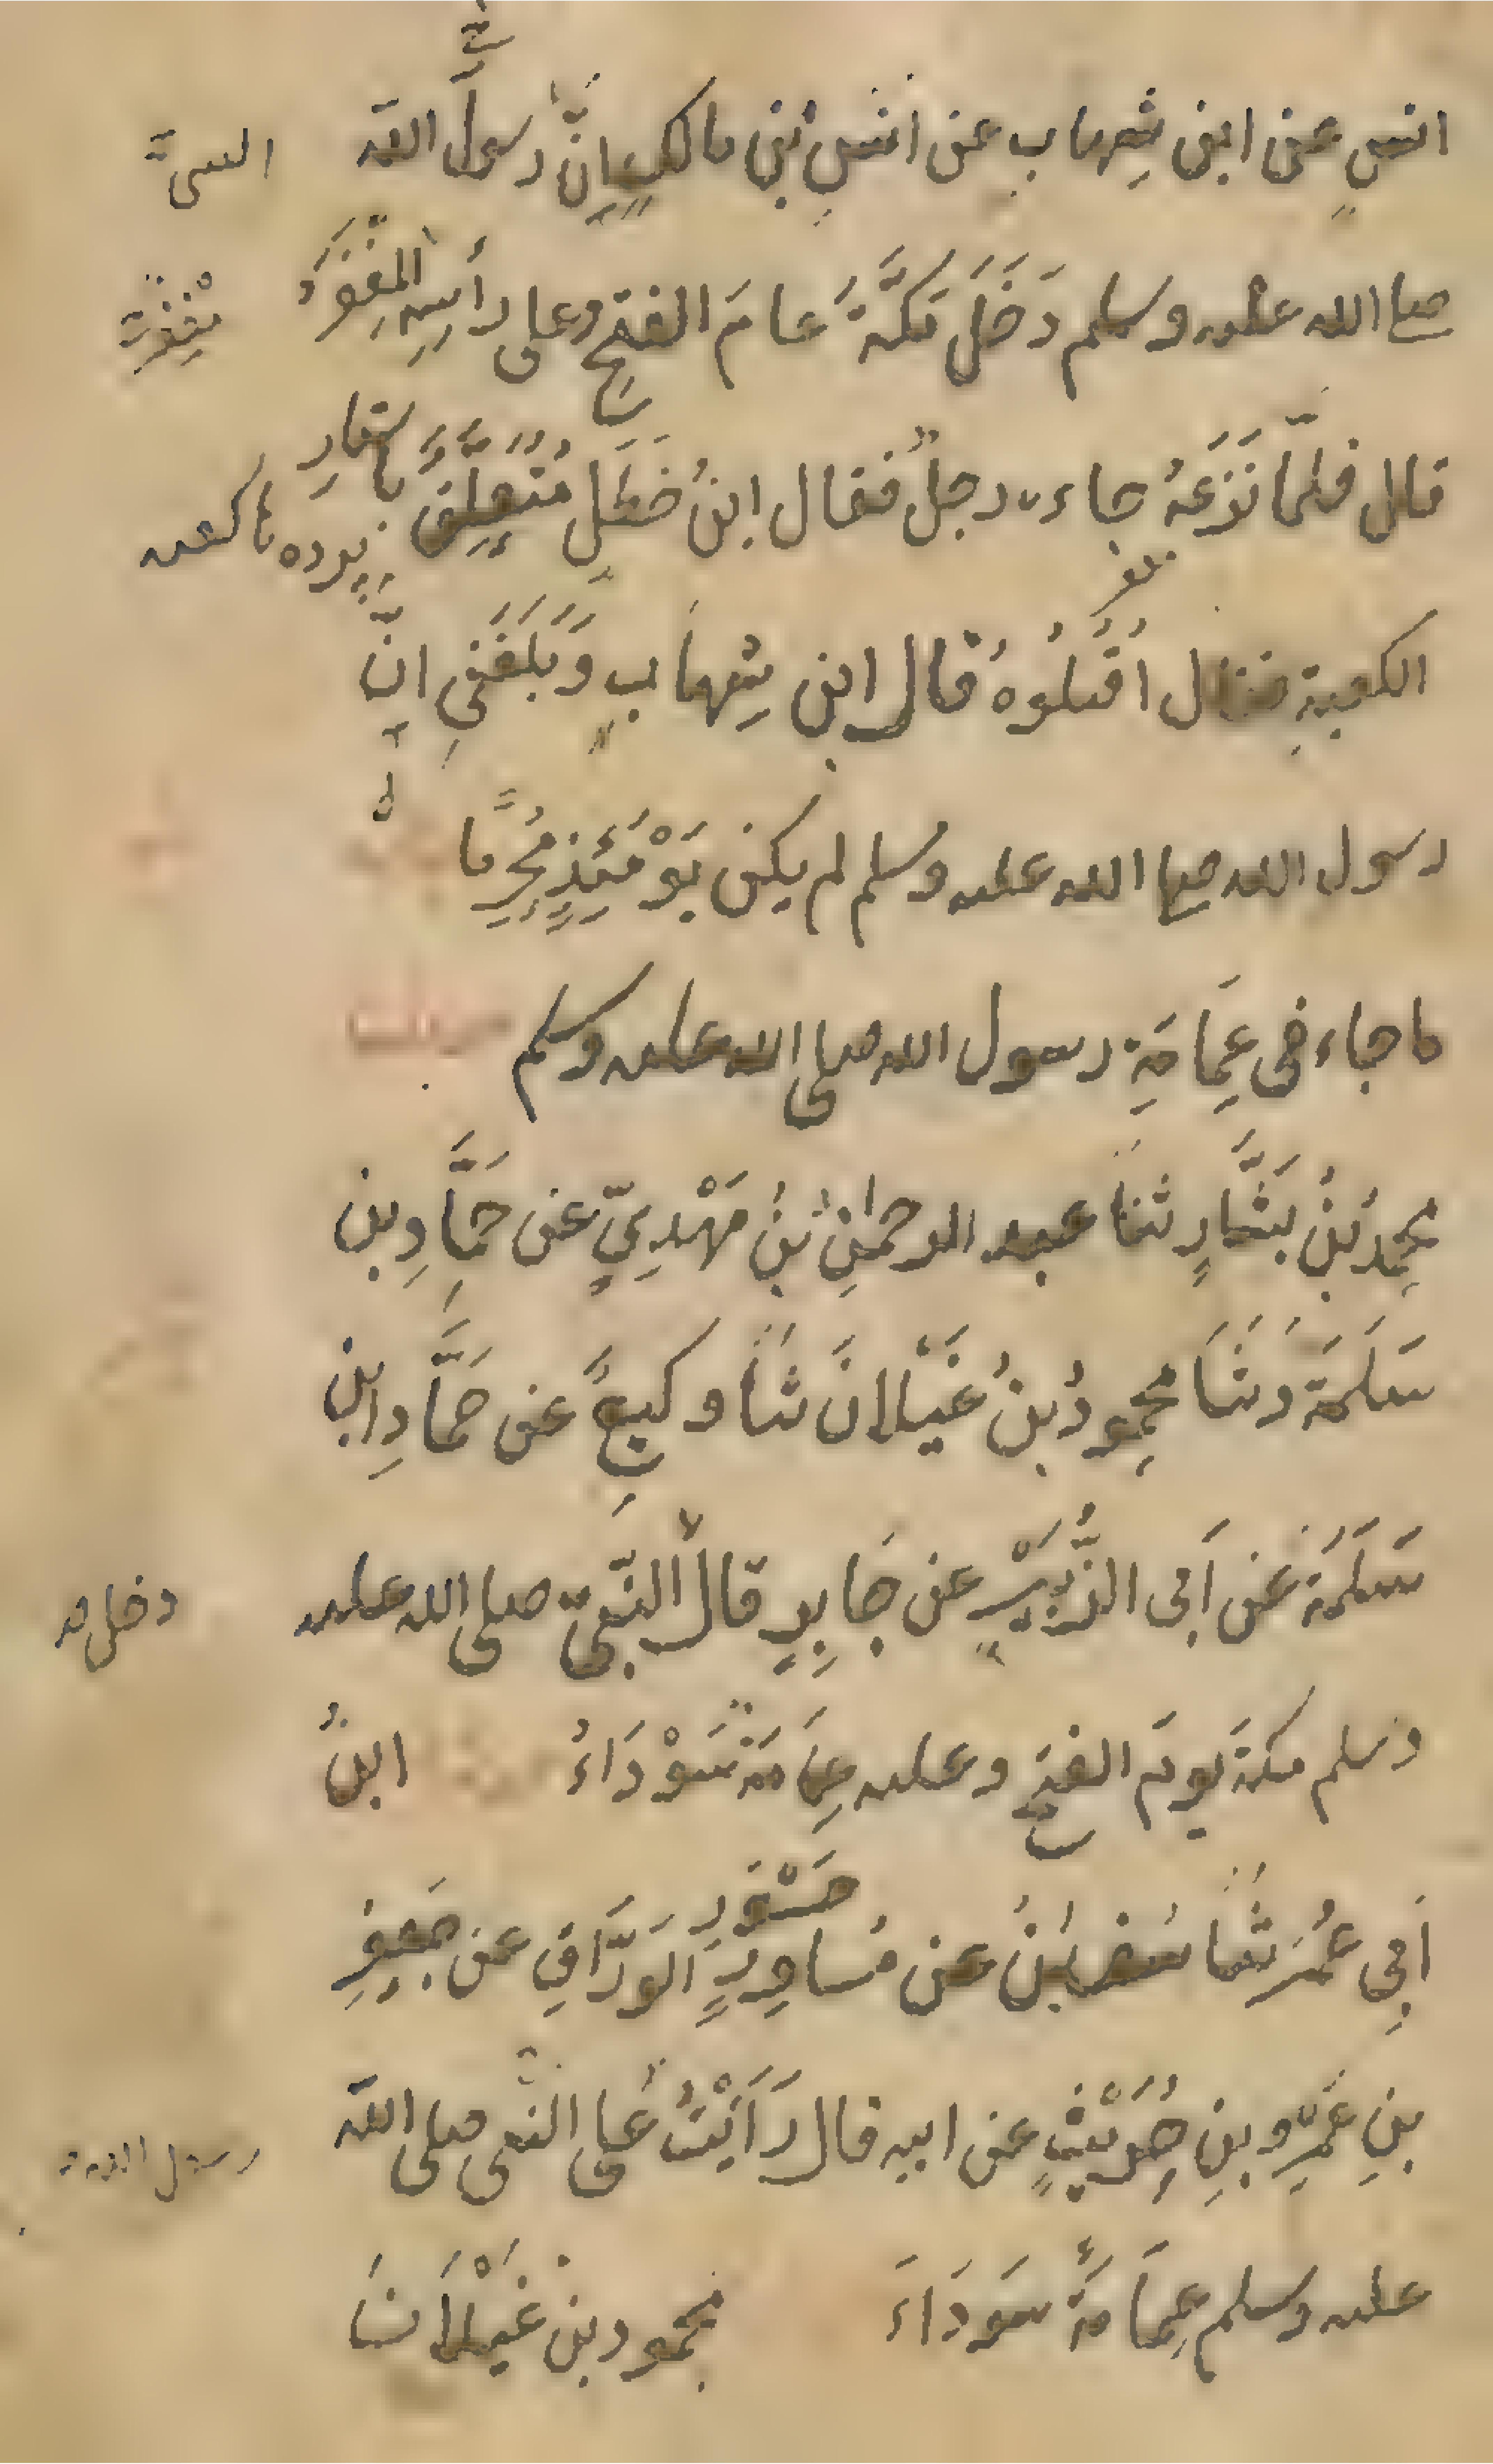 انسٍ عن ابن شِهابٍ عن انسِ بنِ مالكٍ اِنَّ رسولَ الله
صلى الله عليه وسلم دَخَلَ مَكَّةَ عامَ الفتحِ وعلى رأسِهِ المِغْفَرُ
قال فلمّا نَزَعَهُ جاءه رجلٌ فقال ابنُ خَطَلٍ مُتَعَلِّقٌ بِاَستارِ
الكعبةِ فقال اقْتلُوهُ قال ابن شِهابٍ وَبَلَغَنِي انّ
رسول الله صلى الله عليه وسلم لم يكن يَوْمَئِذٍ مُحْرِمًا
ما جاء في عِمَامَةِ رسول الله صلى الله عليه وسلم
محمدُ بنُ بَشَّارٍ ثنا عبد الرحمٰنِ بنُ مَهْدِيٍّ عن حَمَّادِ بن
سَلَمَةَ وثنَا محمودُ بنُ غَيْلانَ ثنا وكيعٌ عن حَمَّادِ ابن
سَلَمَةَ عَن اَبى الزُّبَيْرِ عن جَابِرٍ قال النّبيّ صلى الله عليه
دخل
وسلم مكةَ يومَ الفتحِ وعليه عِمَامَةٌ سَوْدَاءُ ابنُ
اَبِي عُمَرَ ثنا سفيانُ عن مُساوِرٍ الوَرَّاقِ عن جَعفرِ
بنِ عَمْرِو بنِ حُرَيْثٍ عن ابيه قال رَاَيْتُ عَلى النبى صلى الله
رسول الله
عليه وسلم عِمَامَةً سَودَاءَ محمود بنُ غَيْلَانَ نَا